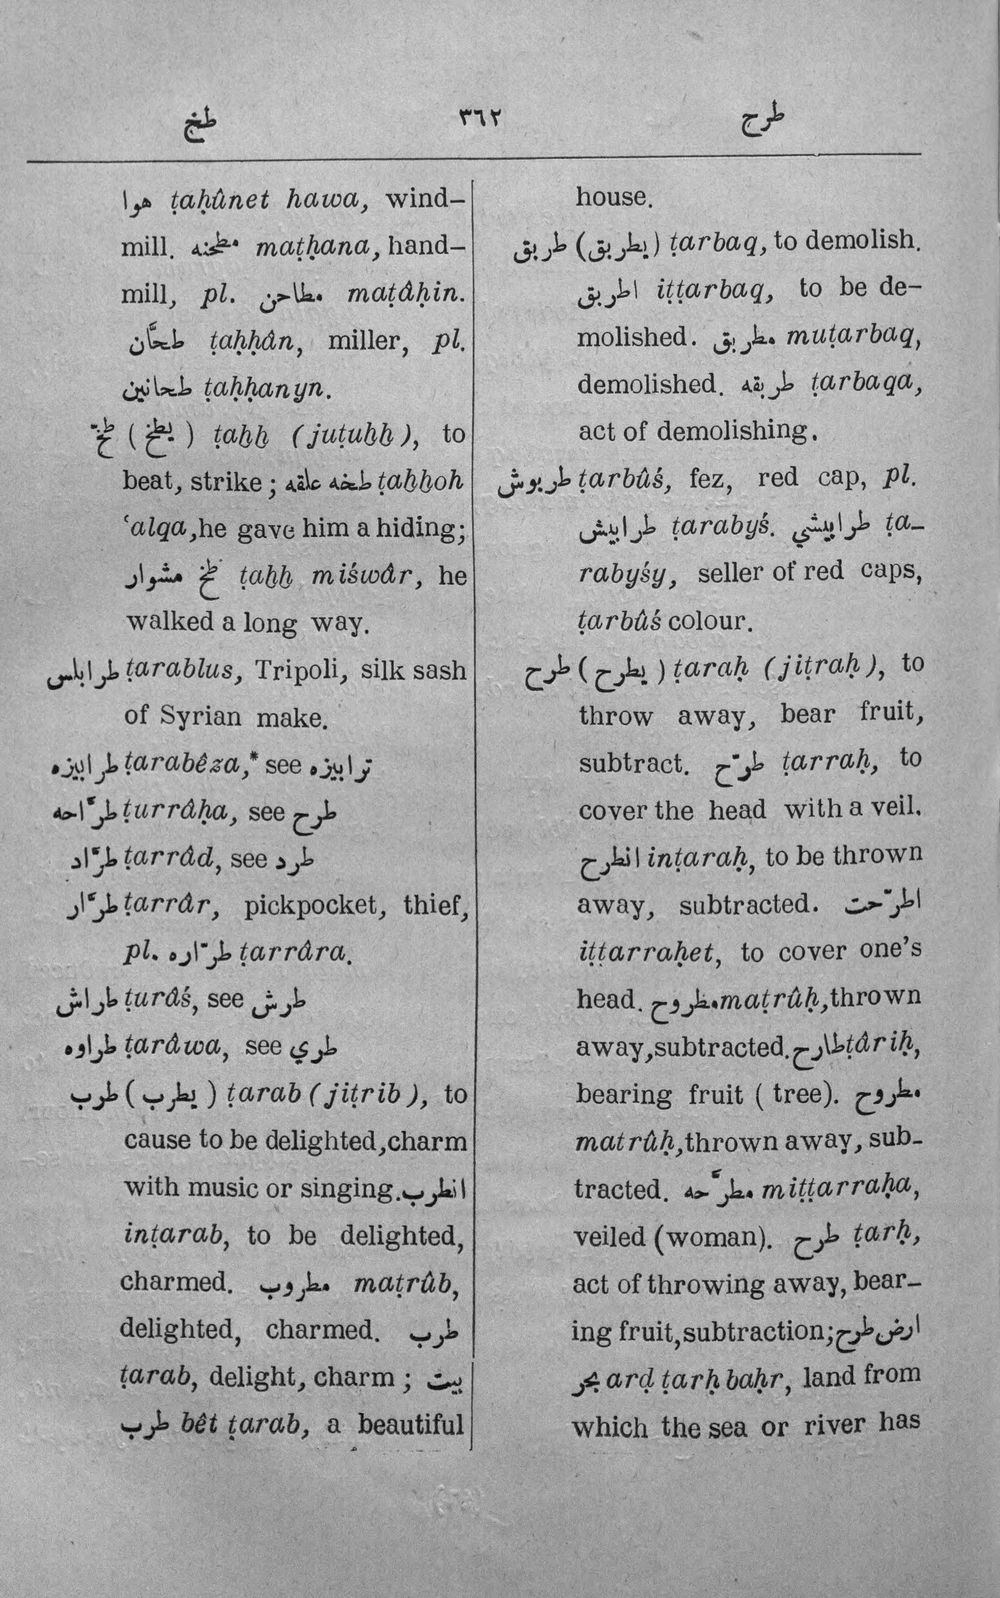 طخ ٣٦٢ طرح
هوا ṭaḥûnet hawa, wind-
mill. مطحنه maṭḥana, hand-
mill, pl. مطاحن maṭâḥin.
طحَّان ṭaḥḥân, miller, pl.
طحانين ṭaḥḥanyn.
طخّ (يطخ) ṭaḫḫ (juṭuḫḫ), to
beat, strike; طخه علقه ṭaḫḫoh
ʿalqa, he gave him a hiding;
طخ مشوار ṭaḫḫ miśwâr, he
walked a long way.
طرابلس ṭarablus, Tripoli, silk sash
of Syrian make.
طرابيزه ṭarabêza,* see ترابيزه
طرَّاحه ṭurrâḥa, see طرح
طرَّاد ṭarrâd, see طرد
طرَّار ṭarrâr, pickpocket, thief,
pl. طرّاره ṭarrâra.
طراش ṭurâś, see طرش
طراوه ṭarâwa, see طري
طرب (يطرب) ṭarab (jiṭrib), to
cause to be delighted, charm
with music or singing. انطرب
inṭarab, to be delighted,
charmed. مطروب maṭrûb,
delighted, charmed. طرب
ṭarab, delight, charm; بيت
طرب bêt ṭarab, a beautiful
house.
طربق (يطربق) ṭarbaq, to demolish.
اطربق iṭṭarbaq, to be de-
molished. مطربق muṭarbaq,
demolished. طربقه ṭarbaqa,
act of demolishing.
طربوش ṭarbûś, fez, red cap, pl.
طرابيش ṭarabyś. طرابيشي ṭa-
rabyśy, seller of red caps,
ṭarbûś colour.
طرح (يطرح) ṭaraḥ (jiṭraḥ), to
throw away, bear fruit,
subtract. طرّح ṭarraḥ, to
cover the head with a veil.
انطرح inṭaraḥ, to be thrown
away, subtracted. اطرّحت
iṭṭarraḥet, to cover one's
head. مطروح maṭrûḥ, thrown
away, subtracted. طارح ṭâriḥ,
bearing fruit (tree). مطروح
matrûḥ, thrown away, sub-
tracted. مطرَّحه miṭṭarraḥa,
veiled (woman). طرح ṭarḥ,
act of throwing away, bear-
ing fruit, subtraction; ارض طرح
بحر arḍ ṭarḥ baḥr, land from
which the sea or river has